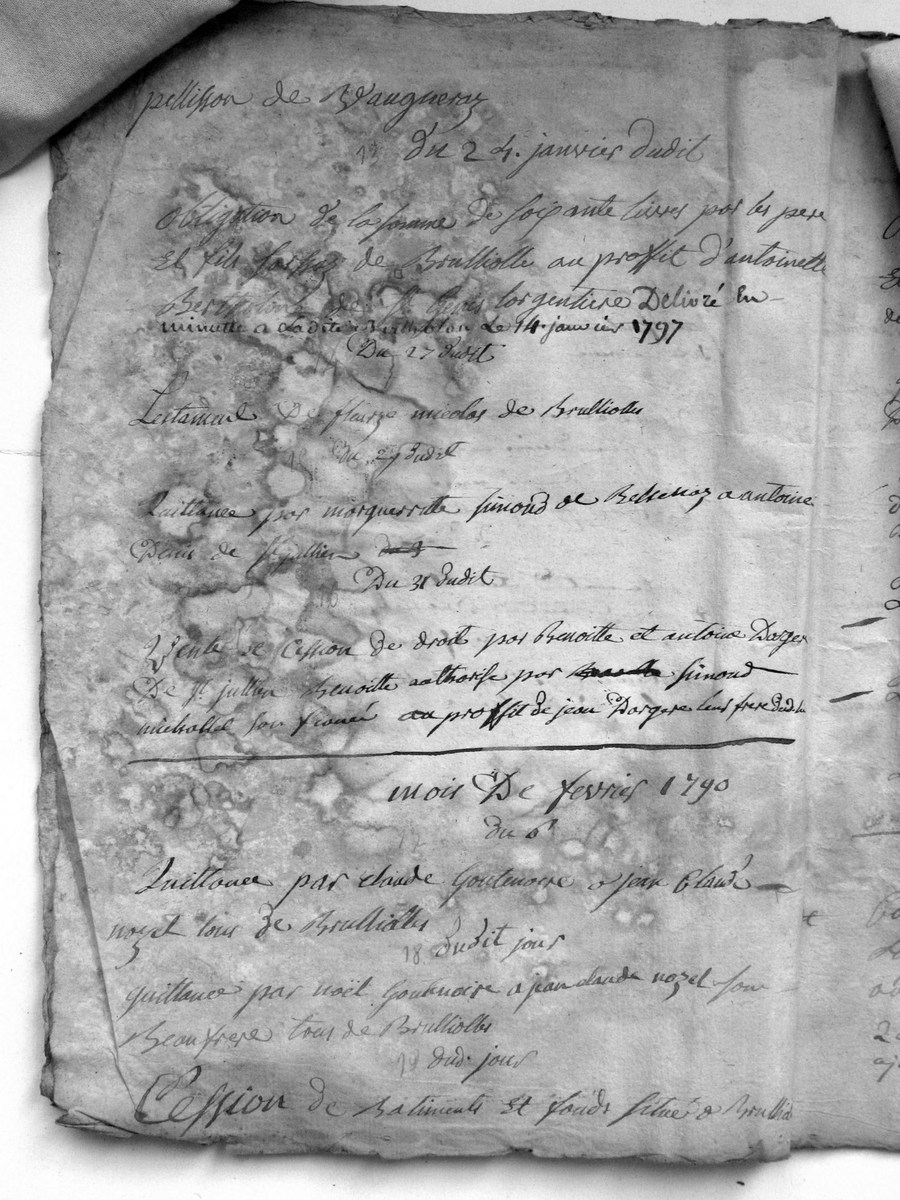 pellisson de Vaugneray
13 du 24. janvier dudit
obligation de la somme de soixante livres par les pere
Et fils de Brulliolle au proffit d'antoinette
Bertholont de St Genis l'argentiere Delivré En
minutte a ladite Le 14. janvier 1797
Du 27 dudit
Testament De fleurye nicolas de Brulliolles
Du 29 dudit
Quittance par marguerritte simond de a antoine
Denis de St jullien
Du 31 dudit
Vente de Cession de droit par Benoitte et antoine Dargere
De St jullien Benoitte authorisé par simond
michallet son fiancé au proffit de jean Dargere leur frere dud. lieu
mois De fevrier 1790
du 6
Quittance par claude Goutenoire a jean Claude
nozet tous de Brulliolles
18 dudit jour
quittance par noël Goutenoire a jean claude nozet son
Beaufrere tous de Brulliolles
19 dud. jour
Cession de Batiments Et fonds situés a Brulliolles